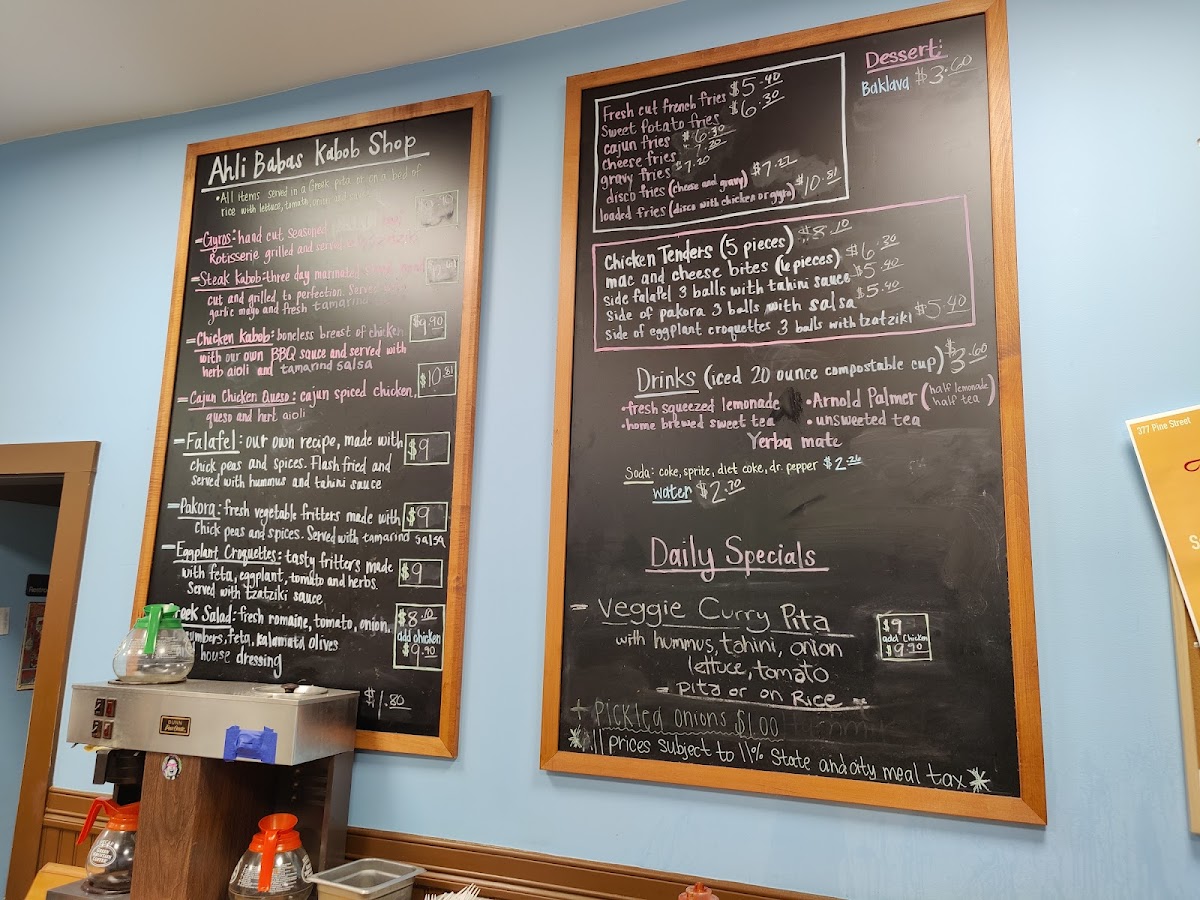 Ahli Babas Kabob Shop
• All items served in a Greek pita or on a bed of
rice with lettuce, tomato, onion
- Gyros: hand cut, seasoned
Rotisserie grilled and served
- Steak Kabob: three day marinated
cut and grilled, to perfection. Served
garlic mayo and fresh tamarind
- Chicken Kabob: boneless breast of chicken $9.90
with our own BBQ sauce and served with
herb aioli and tamarind salsa
- Cajun Chicken Queso: cajun spiced chicken, $10.81
queso and herb aioli
- Falafel: our own recipe, made with $9
chick peas and spices. Flash fried and
served with hummus and tahini sauce
- Pakora: fresh vegetable fritters made with $9
Chick peas and spices. Served with tamarind salsa
- Eggplant Croquettes: tasty fritters made $9
with feta, eggplant, tomato and herbs.
Served with tzatziki sauce
Salad: fresh romaine, tomato, onion, $8.10
feta, kalamata olives add chicken
house dressing $9.90
$1.80
BUNN
Dessert:
Baklava $3.60
Fresh cut french fries $5.40
Sweet potato fries $6.30
cajun fries $6.30
cheese fries $7.20
gravy fries $7.20
disco fries (cheese and gravy)
loaded fries (disco with chicken or gyro) $10.81
Chicken Tenders (5 pieces) $8.10
mac and cheese bites (6 pieces) $6.30
side falafel 3 balls with tahini sauce $5.40
side of pakora 3 balls with salsa $5.40
side of eggplant croquettes 3 balls with tzatziki $5.40
Drinks (iced 20 ounce compostable cup) $3.60
• fresh squeezed lemonade • Arnold Palmer (half lemonade half tea)
• home brewed sweet tea • unsweeted tea
Yerba mate
Soda: coke, sprite, diet coke, dr. pepper $2.26
water $2.70
Daily Specials
- Veggie Curry Pita $9
with hummus, tahini, onion add chicken
lettuce, tomato $9.90
- pita or on Rice -
+ Pickled onions $1.00
*All prices subject to 11% State and city meal tax*
377 Pine Street